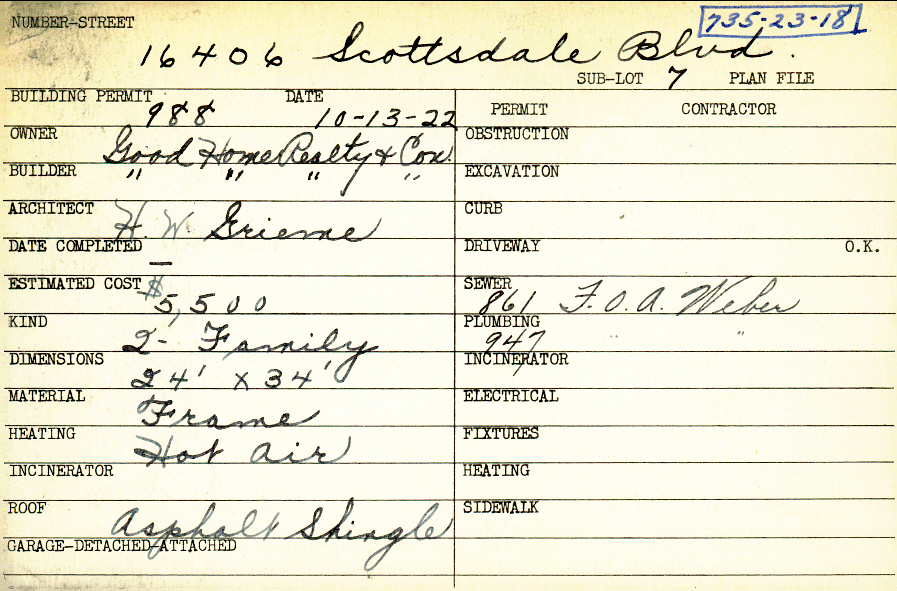 NUMBER-STREET 735-23-18
16406 Scottsdale Blvd.
SUB-LOT 7 PLAN FILE
BUILDING PERMIT 988 DATE 10-13-22
OWNER Good Home Realty & Con.
BUILDER " " " "
ARCHITECT H. W. Grieme
DATE COMPLETED —
ESTIMATED COST $5,500
KIND 2-Family
DIMENSIONS 24' x 34'
MATERIAL Frame
HEATING Hot air
INCINERATOR
ROOF Asphalt Shingle
GARAGE-DETACHED-ATTACHED
PERMIT CONTRACTOR
OBSTRUCTION
EXCAVATION
CURB
DRIVEWAY O.K.
SEWER 861 F.O.A. Weber
PLUMBING 947 " "
INCINERATOR
ELECTRICAL
FIXTURES
HEATING
SIDEWALK